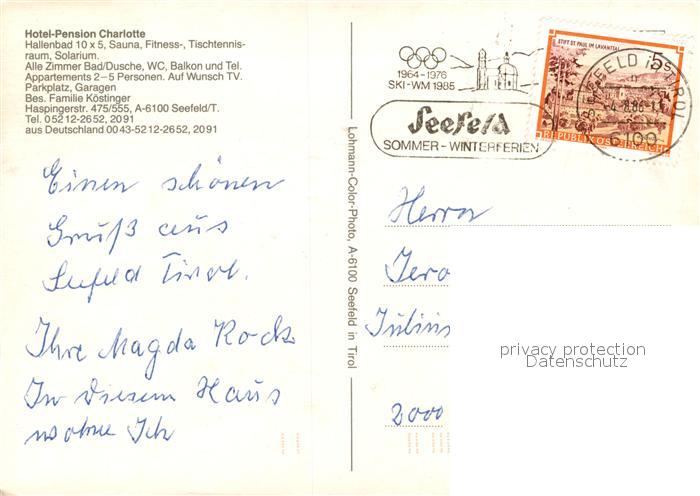 Hotel-Pension Charlotte
Hallenbad 10 x 5, Sauna, Fitness-, Tischtennis-
raum, Solarium.
Alle Zimmer Bad/Dusche, WC, Balkon und Tel.
Appartements 2–5 Personen. Auf Wunsch TV.
Parkplatz, Garagen
Bes. Familie Köstinger
Haspingerstr. 475/555, A-6100 Seefeld/T.
Tel. 05212-2652, 2091
aus Deutschland 0043-5212-2652, 2091
Einen schönen
Gruß aus
Seefeld Tirol.
Ihre Magda Rock
In diesem Haus
wohne Ich
Lohmann-Color-Photo, A-6100 Seefeld in Tirol
1964-1976
SKI-WM 1985
Seefeld
SOMMER-WINTERFERIEN
STIFT ST. PAUL IM LAVANTTAL
5S
REPUBLIK ÖSTERREICH
SEEFELD in TIROL
6100
Herrn
Jero
Julius
2000
privacy protection
Datenschutz